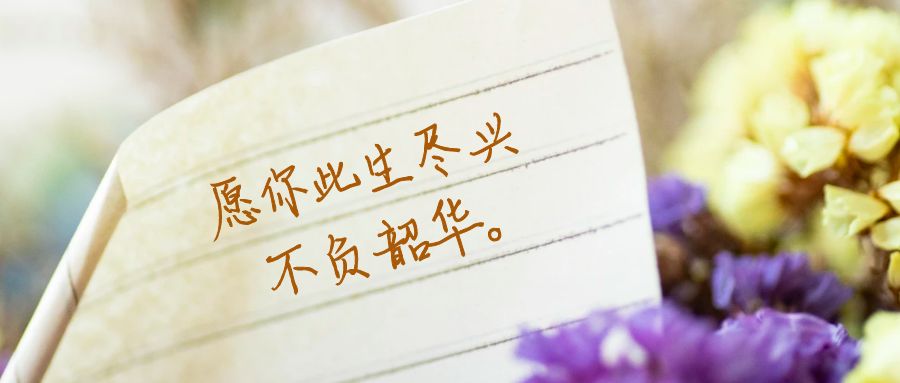 愿你此生尽兴
不负韶华。